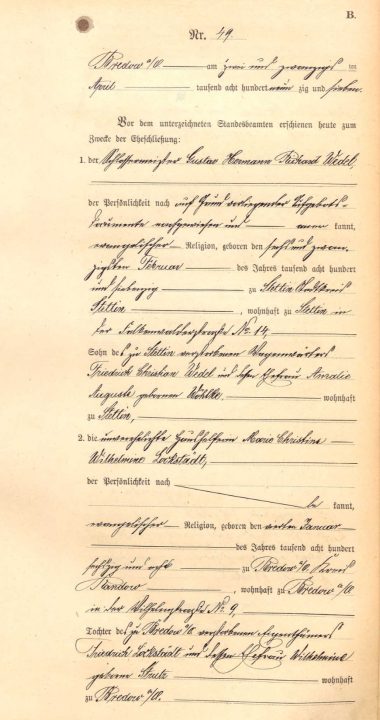 B.
Nr. 49
Bredow a/O am zwei und zwanzigsten
April tausend acht hundert neun zig und sieben.
Vor dem unterzeichneten Standesbeamten erschienen heute zum
Zwecke der Eheschließung:
1. der Schlossermeister Gustav Hermann Richard Wedel,
der Persönlichkeit nach auf Grund vorliegender Aufgebots-
dokumente nachgewiesen und kannt,
evangelischer Religion, geboren den sechs und zwan-
zigsten Februar des Jahres tausend acht hundert
und siebenzig zu Stettin Stadtkreis
Stettin, wohnhaft zu Stettin in
der Falkenwalderstraße No 14,
Sohn des zu Stettin verstorbenen Wagenwärters
Friedrich Christian Wedel und dessen Ehefrau Amalie
Auguste geborenen wohnhaft
zu Stettin,
2. die unverehelichte Haushälterin Marie Christine
Wilhelmine Lockstädt,
der Persönlichkeit nach
be kannt,
evangelischer Religion, geboren den Januar
des Jahres tausend acht hundert
sechszig und acht zu Bredow a/O. Kreis
Randow, wohnhaft zu Bredow a/O
in der Wilhelmstraße No. 9,
Tochter des zu Bredow a/O. verstorbenen Eigenthümers
Friedrich Lockstädt und dessen Ehefrau Wilhelmine
geborene wohnhaft
zu Bredow a/O.